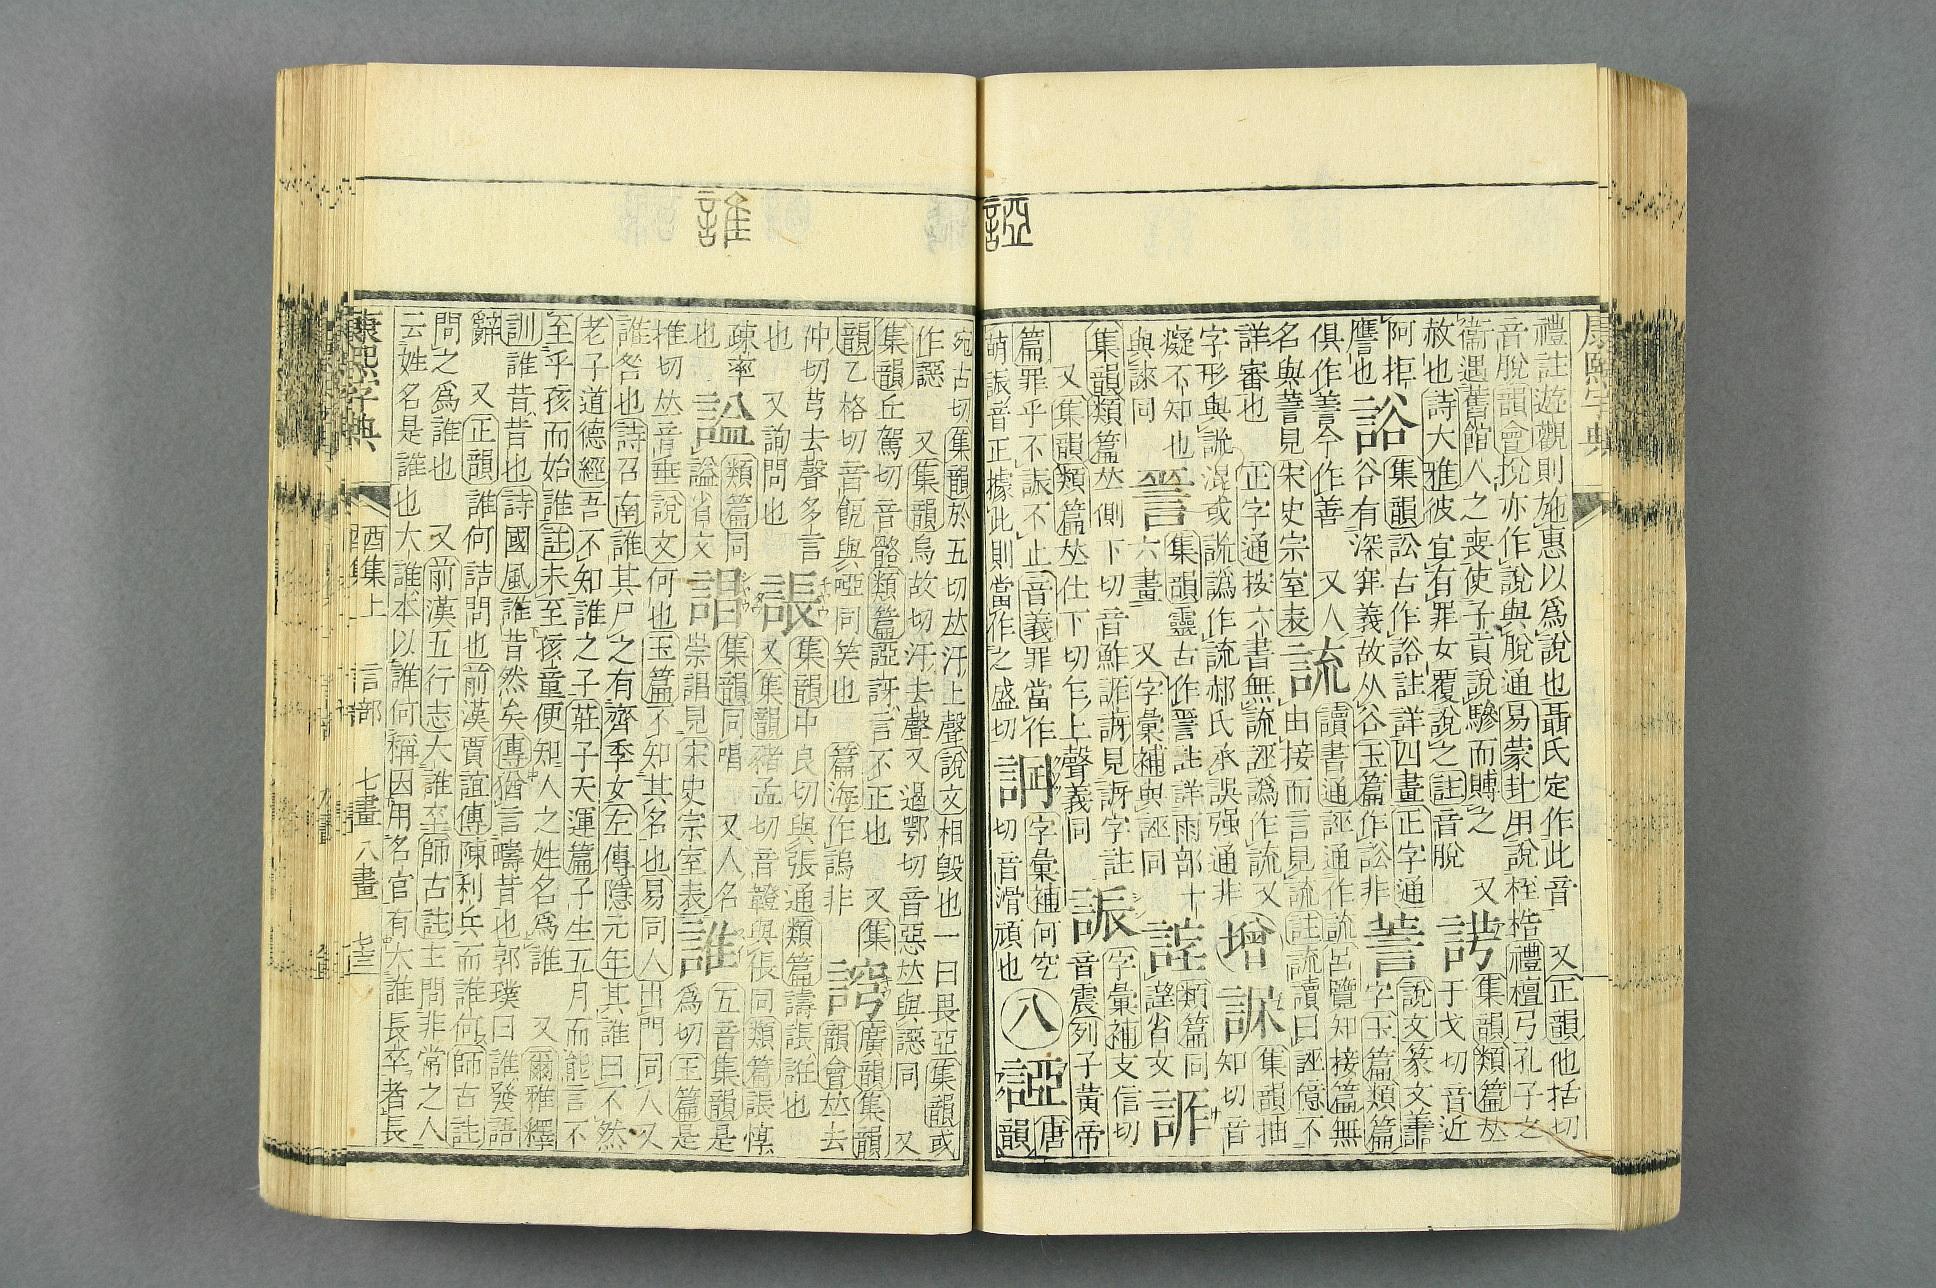 誙
禮註遊觀則施惠以爲說也聶氏定作此音 又正韻他括切
音脫韻會挩亦作說與脫通易蒙卦用說桎梏禮檀弓孔子之
衞遇舊館人之喪使子貢說驂而賻之 又集韻類篇𠀤
赦也詩大雅彼宜有罪女覆說之註音脫 于戈切音近
阿拒 谷集韻訟古作谽註詳四畫正字通 說文篆文譱
譍也 谷有深穽義故从谷玉篇作訟非 字玉篇類篇
俱作善今作善 又人 讀書通誣通作䟽呂覽知接篇無
名與譱見宋史宗室表 由接而言見䟽註䟽讀曰誣億不
詳審也 正字通按六書無䟽誣譌作䟽 又 集韻抽
字形與說混或說譌作䟽郝氏承誤强通非 知切音
癡不知也 集韻靈古作𧧻註詳雨部十 類篇同
與誺同 六畫 又字彙補與誣同 謹省文
又集韻類篇𠀤仕下切乍上聲義同 字彙補支信切
集韻類篇𠀤側下切音鮓詐訝見訝字註 音震列子黃帝
篇罪乎不誫不止音義罪當作 字彙補何空 唐
萌誫音正據此則當作之盛切 切音滑頑也 八 誙 韻
誰
宛古切集韻於五切𠀤汙上聲說文相毀也一曰畏亞集韻或
作惡 又集韻烏故切汙去聲又遏鄂切音惡𠀤與惡同 又
集韻丘駕切音髂類篇誙訝言不正也 又集 廣韻集韻
韻乙格切音𩚬與啞同笑也 篇海作譌非 韻會𠀤去
仲切芎去聲多言 集韻中良切與張通類篇譸張誑也
也 又詢問也 又集韻豬孟切音𧭈與張同類篇誫悙
疎率 類篇同 集韻同唱 又人名 五音集韻是
也 謚 謚省文 崇誯見宋史宗室表 誰 爲切玉篇是
推切𠀤音垂說文何也玉篇不知其名也易同人出門同人又
誰咎也詩召南誰其尸之有齊季女左傳隱元年其誰曰不然
老子道德經吾不知誰之子莊子天運篇子生五月而能言不
至乎孩而始誰註未至孩童便知人之姓名爲誰 又爾雅釋
訓誰昔昔也詩國風誰昔然矣傳猶言疇昔也郭璞曰誰發語
辭 又正韻誰何詰問也前漢賈誼傳陳利兵而誰何師古註
問之爲誰也 又前漢五行志大誰至師古註主問非常之人
云姓名是誰也大誰本以誰何稱因用名官有大誰長幸者長
康熙字典 酉集上 言部 七畫 八畫